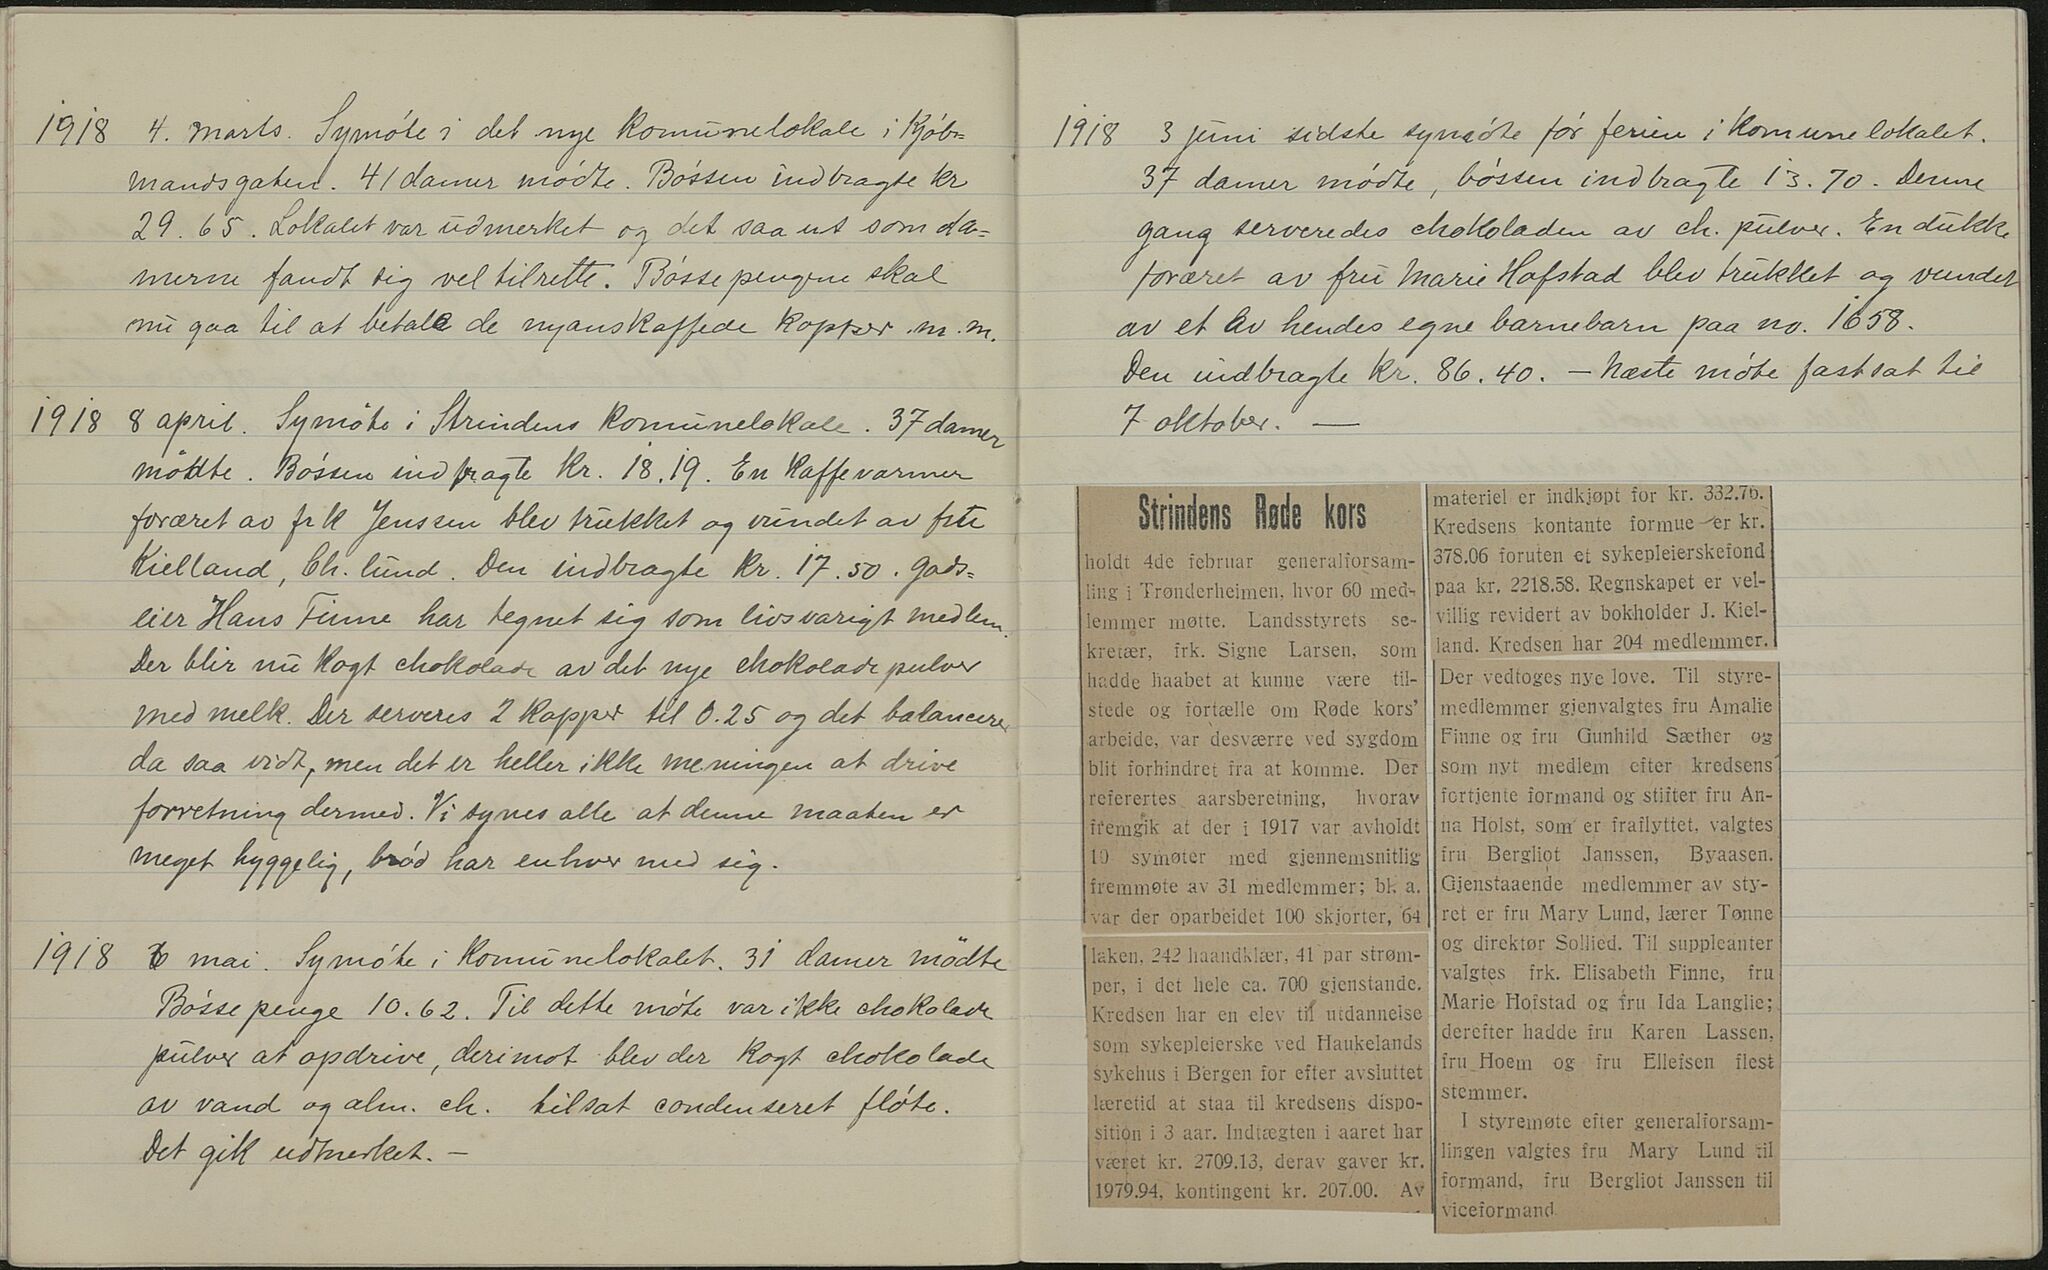 1918 4. marts. Symöte i det nye komunelokale i Kjöb=
mandsgaten. 41 damer mödte. Bössen indbragte kr
29.65. Lokalet var udmerket og det saa ut som da=
merne fandt sig vel tilrette. Bössepengene skal
nu gaa til at betale de nyanskaffede kopper m.m.
1918 8 april. Symöte i Strindens komunelokale. 37 damer
mödte. Bössen indbragte kr. 18.19. En kaffevarmer
foræret av frk Jenssen blev trukket og vundet av fru
Kielland, Ch.lund. Den indbragte kr. 17.50. Gods=
eier Hans Finne har tegnet sig som livsvarigt medlem.
Der blir nu kogt chokolade av det nye chokoladepulver
med melk. Der serveres 2 kopper til 0.25 og det balancerer
da saa vidt, men det er heller ikke meningen at drive
forretning dermed. Vi synes alle at denne maaten er
meget hyggelig, bröd har enhver med sig.
1918 6 mai. Symöte i Komunelokalet. 31 damer mödte
Bössepenge 10.62. Til dette möte var ikke chokolade
pulver at opdrive, derimot blev der kogt chokolade
av vand og alm. ch. tilsat condenseret flöte.
Det gik udmerket. —
1918 3 juni sidste symöte för ferien i Komunelokalet.
37 damer mödte, bössen indbragte 13.70. Denne
gang serveredes chokoladen av ch. pulver. En dukke
foræret av fru Marie Hofstad blev trukket og vundet
av et av hendes egne barnebarn paa no. 1658.
Den indbragte kr. 86.40. — Næste möte fastsat til
7 oktober. —
Strindens Røde kors
holdt 4de februar generalforsam-
ling i Trønderheimen, hvor 60 med-
lemmer møtte. Landsstyrets se-
kretær, frk. Signe Larsen, som
hadde haabet at kunne være til-
stede og fortælle om Røde kors'
arbeide, var desværre ved sygdom
blit forhindret fra at komme. Der
referertes aarsberetning, hvorav
fremgik at der i 1917 var avholdt
10 symøter med gjennemsnitlig
fremmøte av 31 medlemmer; bl. a.
var der oparbeidet 100 skjorter, 64
laken, 242 haandklær, 41 par strøm-
per, i det hele ca. 700 gjenstande.
Kredsen har en elev til utdannelse
som sykepleierske ved Haukelands
sykehus i Bergen for efter avsluttet
læretid at staa til kredsens dispo-
sition i 3 aar. Indtægten i aaret har
været kr. 2709.13, derav gaver kr.
1979.94, kontingent kr. 207.00. Av
materiel er indkjøpt for kr. 332.76.
Kredsens kontante formue er kr.
378.06 foruten et sykepleierskefond
paa kr. 2218.58. Regnskapet er vel-
villig revidert av bokholder J. Kiel-
land. Kredsen har 204 medlemmer.
Der vedtoges nye love. Til styre-
medlemmer gjenvalgtes fru Amalie
Finne og fru Gunhild Sæther og
som nyt medlem efter kredsens
fortjente formand og stifter fru An-
na Holst, som er fraflyttet, valgtes
fru Bergliot Janssen, Byaasen.
Gjenstaaende medlemmer av sty-
ret er fru Mary Lund, lærer Tønne
og direktør Sollied. Til suppleanter
valgtes frk. Elisabeth Finne, fru
Marie Hofstad og fru Ida Langlie;
derefter hadde fru Karen Lassen,
fru Hoem og fru Ellefsen flest
stemmer.
I styremøte efter generalforsam-
lingen valgtes fru Mary Lund til
formand, fru Bergliot Janssen til
viceformand.